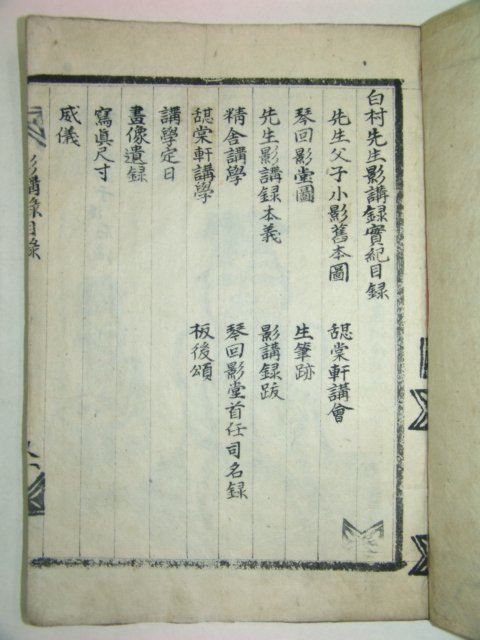 白村先生影講録實紀目録
先生父子小影舊本圖
琴回影堂圖
先生影講録本義
精舍講學
憇棠軒講學
講學定日
畫像遺録
寫眞尺寸
威儀
憇棠軒講會
生筆跡
影講録跋
琴回影堂首任司名録
板後頌
影講録目録